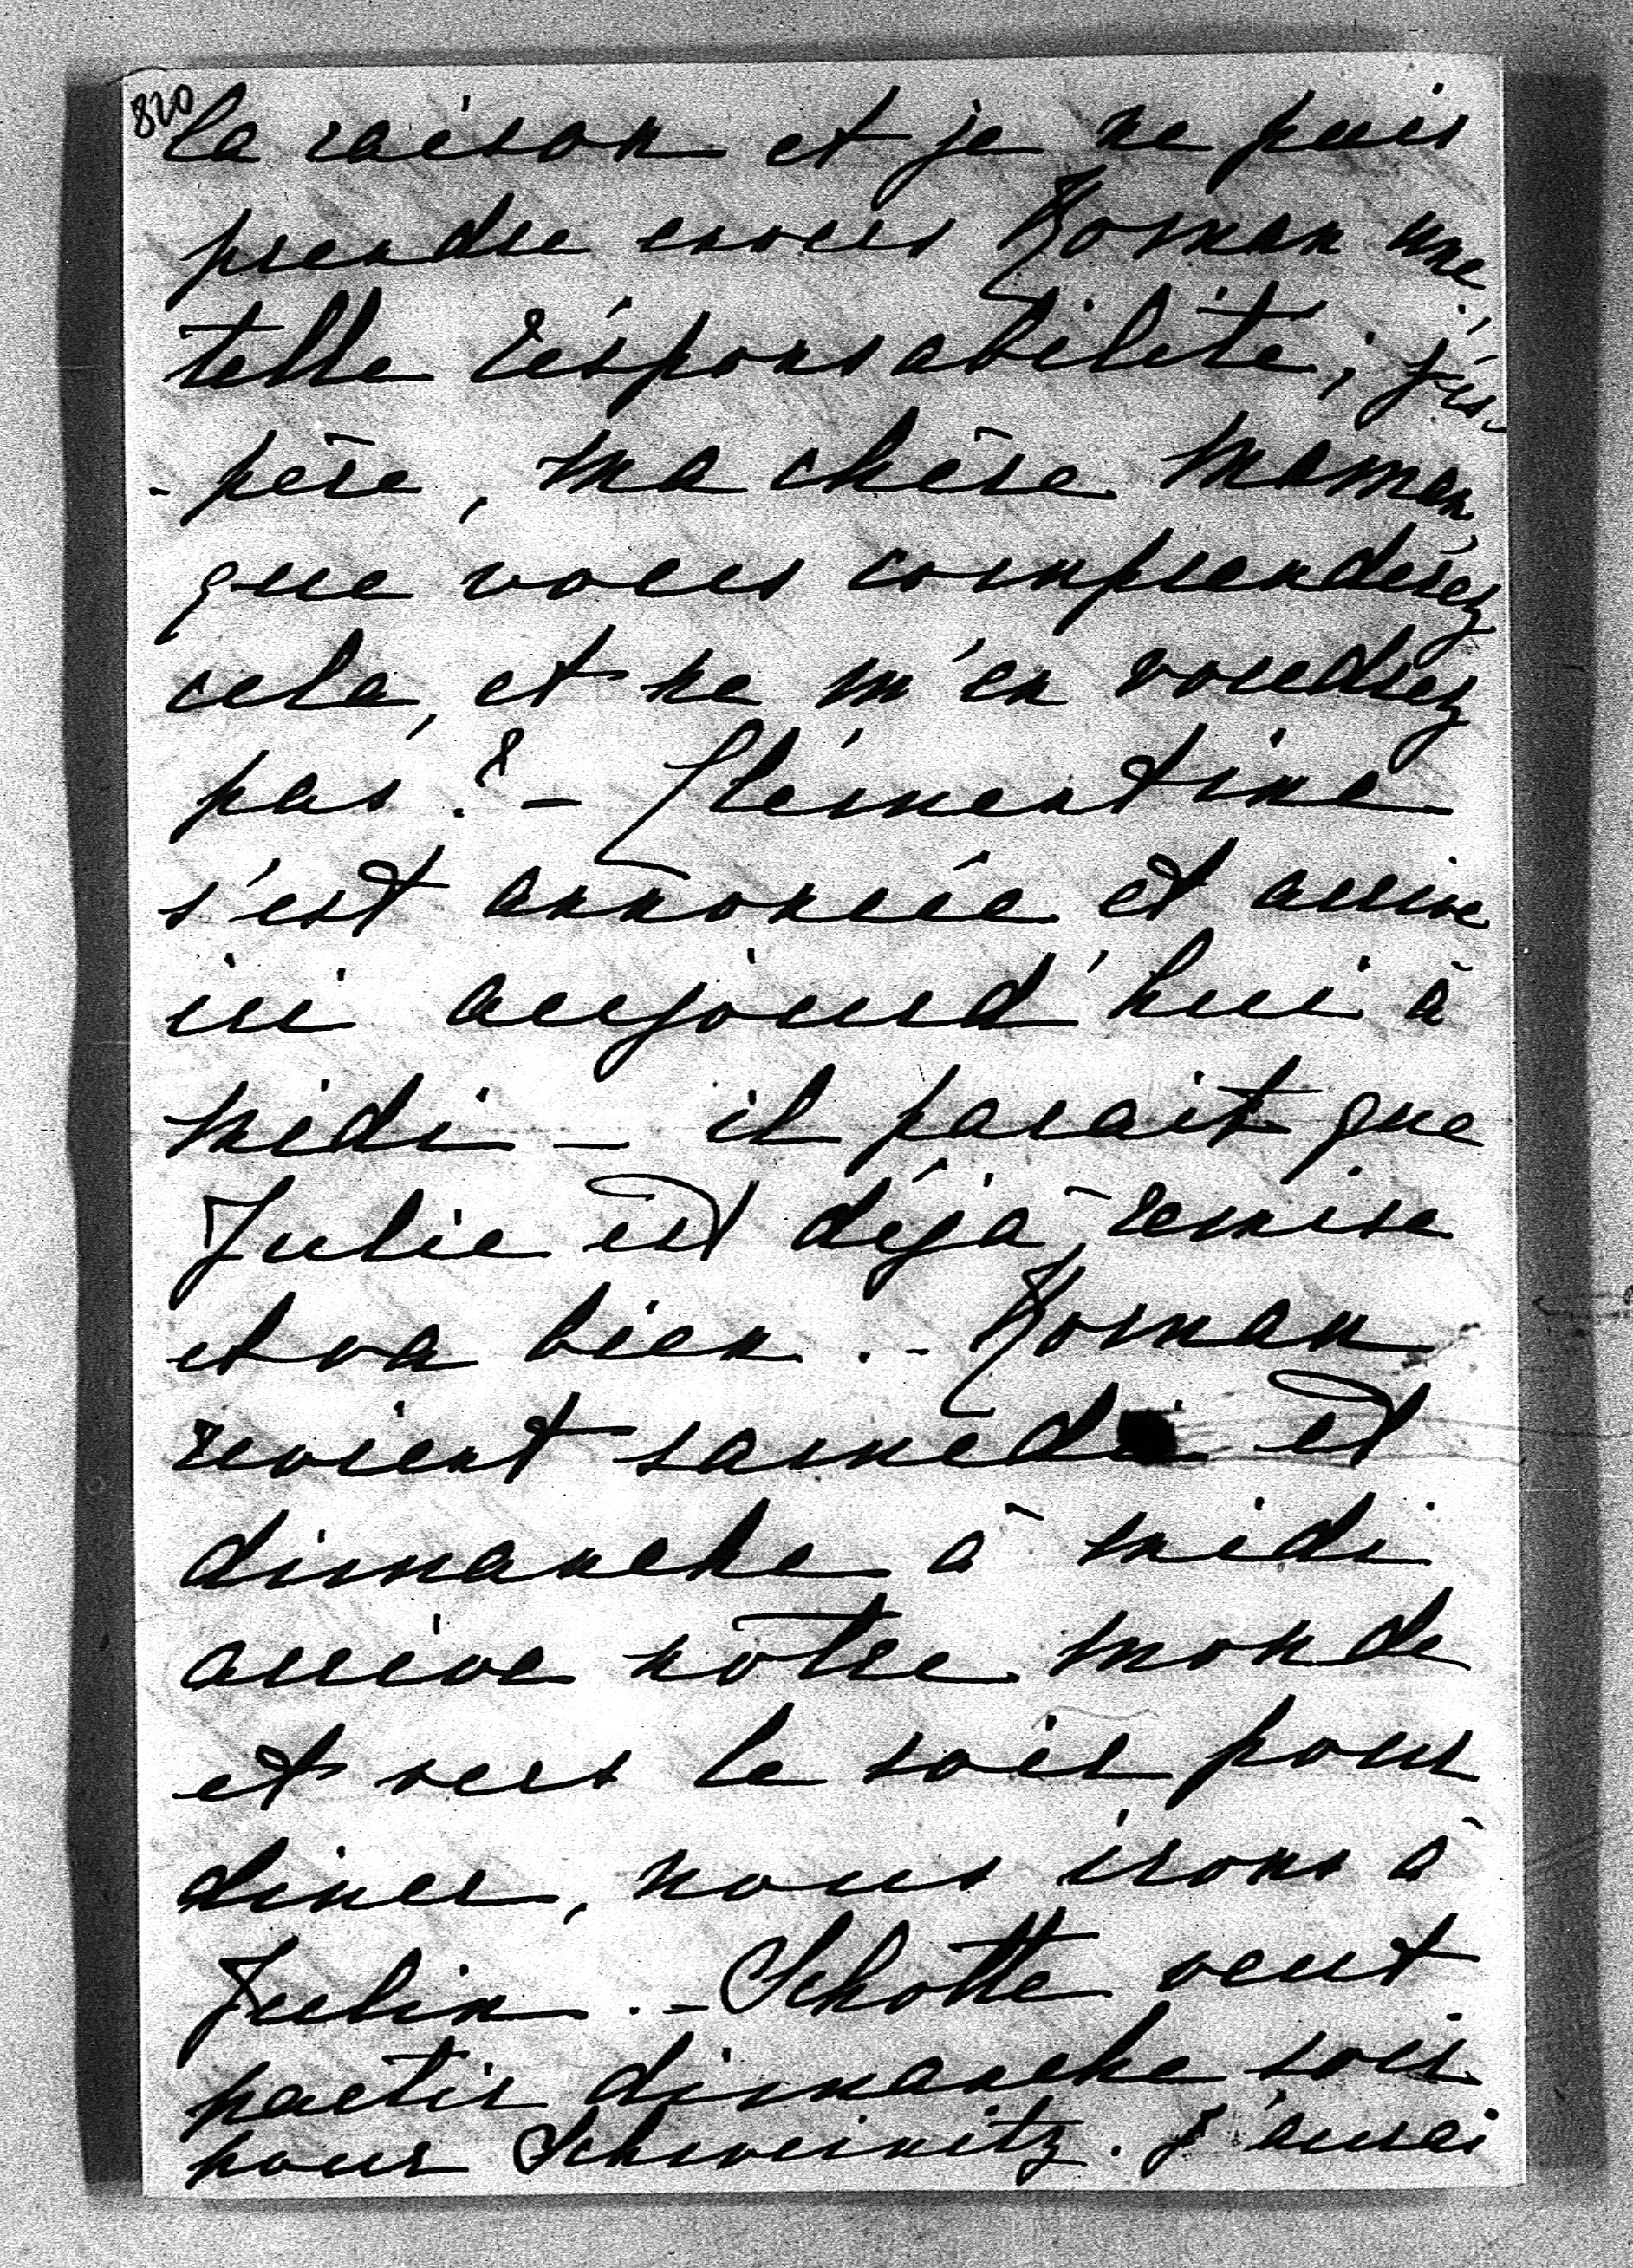 820
la raison et je ne puis
prendre envers Roman une
telle résponsabilité; j'es-
-père, ma chère Maman,
que vous comprenderez
cela, et ne m'en voudrez
pas? - Clémentine
s'est annoncée et arrive
ici aujourd'hui à
midi - il parait que
Julie est déjà remise
et va bien. - Roman
revient samedi et
dimanche à midi
arrive notre monde
et vers le soir pour
diner, nous irons à
Julin. - Schotte veut
partir dimanche soir
pour Schweinitz. J'aurai